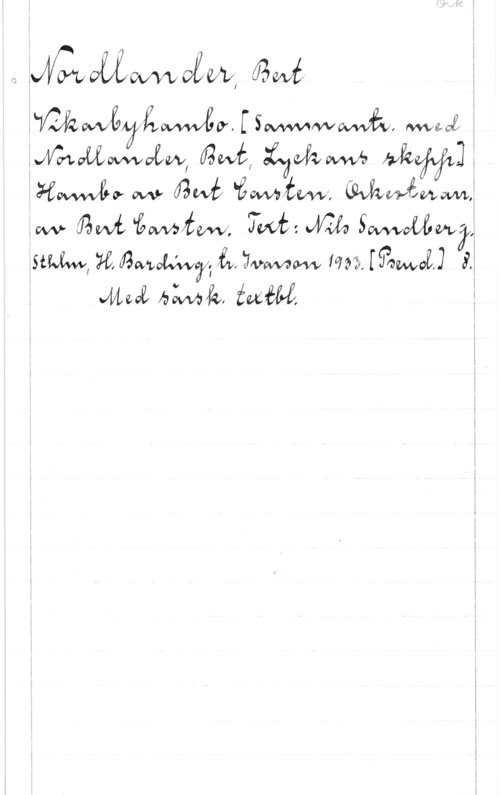 Ork
Nordlander, Bert
Vikarbyhambo. [Sammantr. med
Nordlander, Bert, Lyckans skepp]
Hambo av Bert Carsten. Orkesterarr.
av Bert Carsten. Text: Nils Sandberg.
Sthlm, H. Barding; tr. Ivarson 1933. [Pseud.] 8.
Med särsk. textbl.